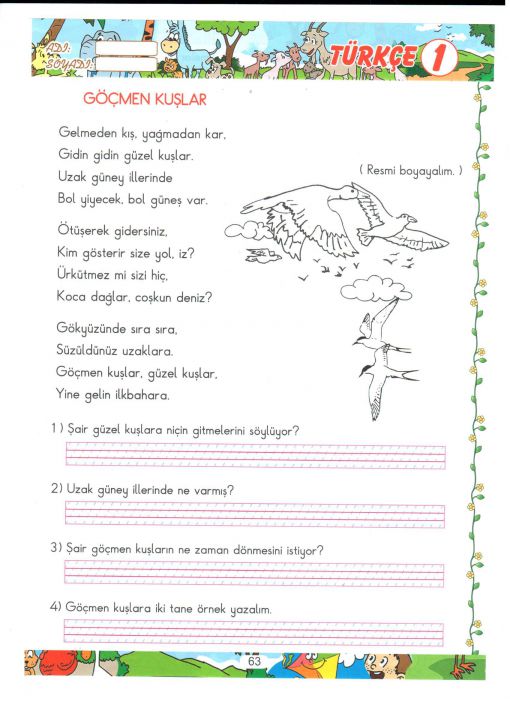 ADI:
SOYADI:
TÜRKÇE 1
GÖÇMEN KUŞLAR
Gelmeden kış, yağmadan kar,
Gidin gidin güzel kuşlar.
Uzak güney illerinde
Bol yiyecek, bol güneş var.
( Resmi boyayalım. )
Ötüşerek gidersiniz,
Kim gösterir size yol, iz?
Ürkütmez mi sizi hiç,
Koca dağlar, coşkun deniz?
Gökyüzünde sıra sıra,
Süzüldünüz uzaklara.
Göçmen kuşlar, güzel kuşlar,
Yine gelin ilkbahara.
1) Şair güzel kuşlara niçin gitmelerini söylüyor?
2) Uzak güney illerinde ne varmış?
3) Şair göçmen kuşların ne zaman dönmesini istiyor?
4) Göçmen kuşlara iki tane örnek yazalım.
63